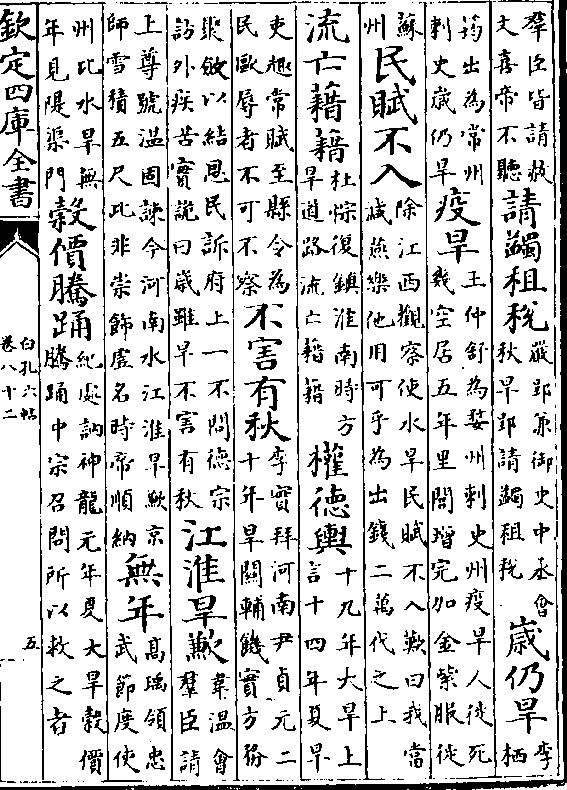 羣臣皆請赦
文喜帝不聽
請蠲租稅
嚴郢兼御史中丞會
秋旱郢請蠲租稅
歲仍旱
李
栖
筠出為常州
刺史歲仍旱
疫旱
王仲舒為婺州刺史州疫旱人徙死
幾空居五年里閭增完加金紫服徙
蘇
州
民賦不入
除江西觀察使水旱民賦不入歎曰我當
減燕樂他用可乎為出錢二萬代之上
流亡藉藉
杜悰復鎮淮南時方
旱道路流亡藉藉
權德輿
十九年大旱上
言十四年夏旱
吏趣常賦至縣令為
民毆辱者不可不察
不害有秋
李實拜河南尹貞元二
十年旱關輔饑實方務
聚斂以結恩民訴府上一不問德宗
訪外疾苦實詭曰歲雖旱不害有秋
江淮旱歉
韋温會
羣臣請
上尊號温固諫今河南水江淮旱歉京
師雪積五尺此非崇飾虛名時帝順納
無年
高瑀領忠
武節度使
州比水旱無
年見隄渠門
穀價騰踊
紀處訥神龍元年夏大旱穀價
騰踊中宗召問所以救之者
欽定四庫全書
白孔六帖
卷八十二
五